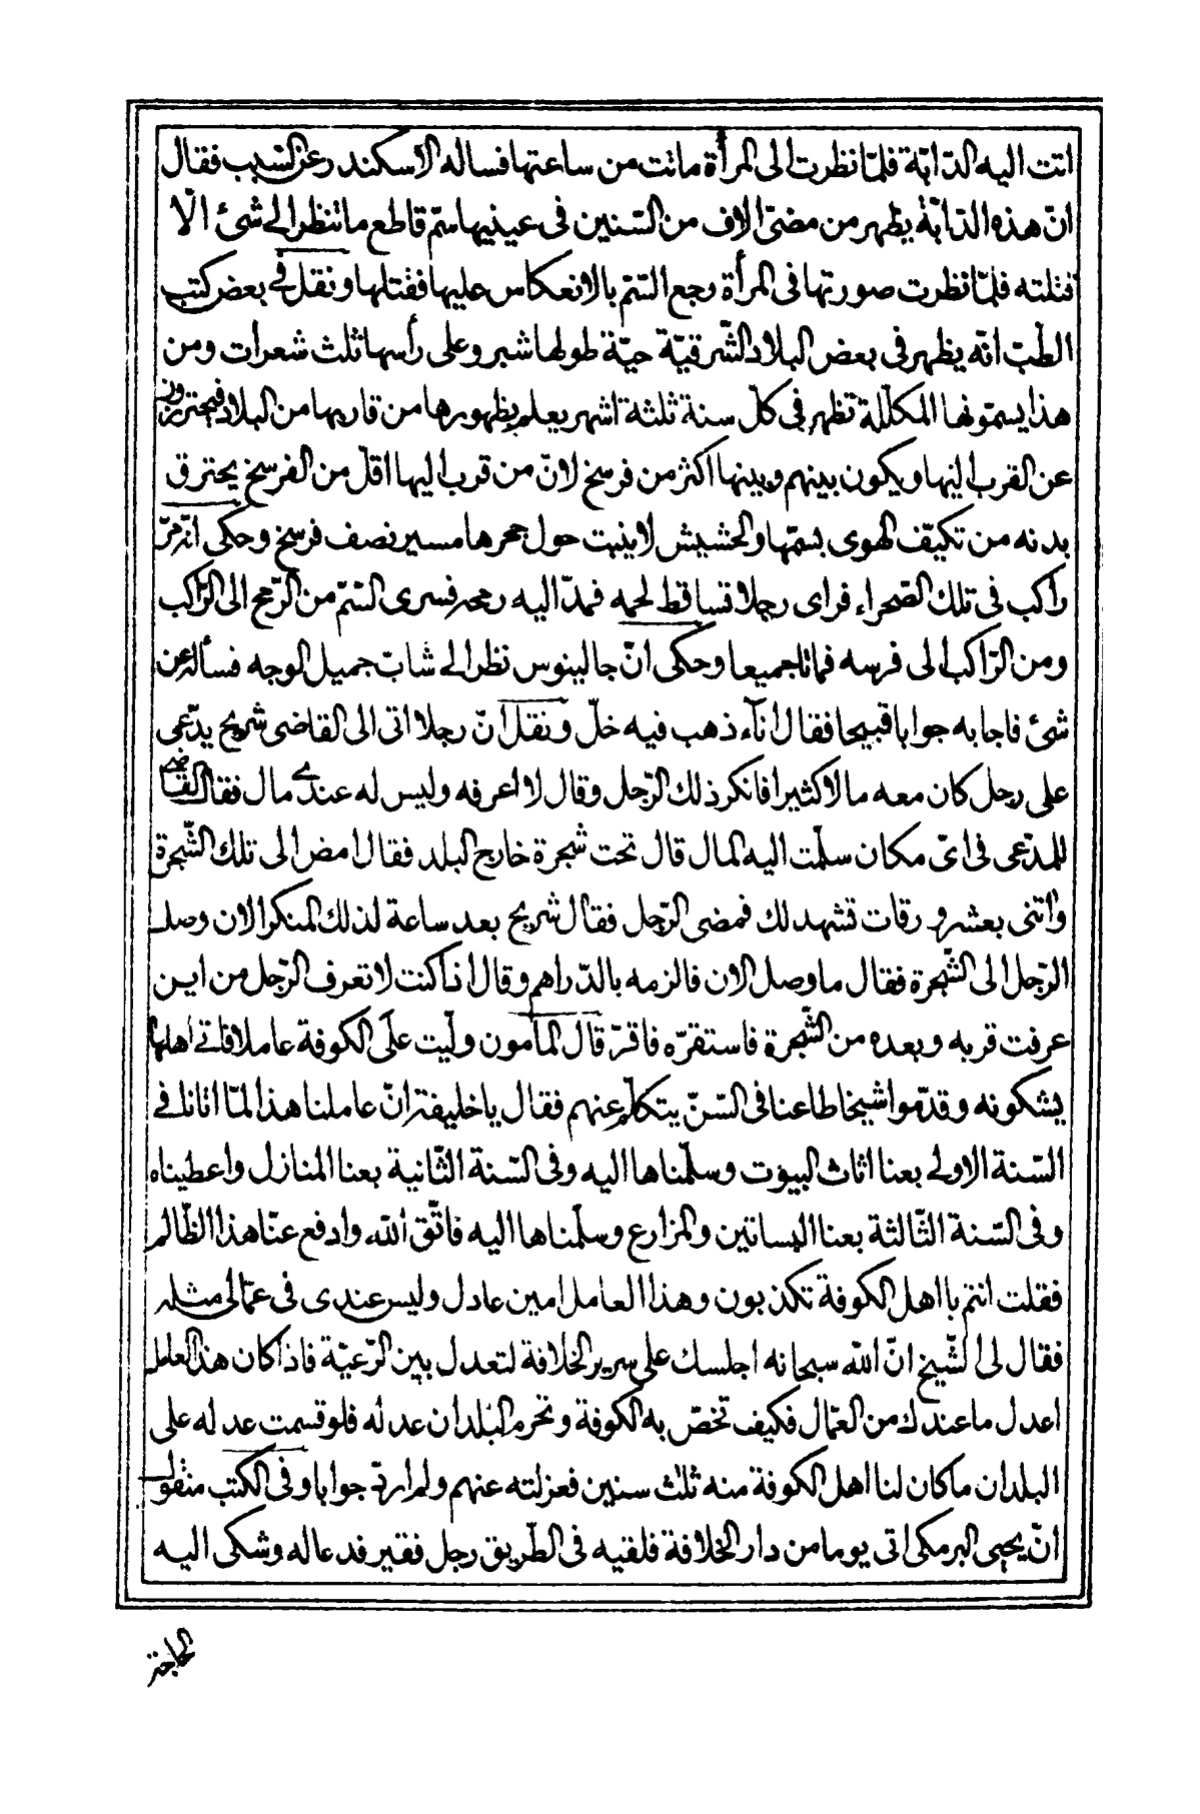 اتت اليه الدّابّة فلمّا نظرت الى المرأة ماتت من ساعتها فساله الاسكندر عن السّبب فقال
انّ هذه الدّابّة يظهر من مضىّ الاف من السّنين فى عينيها سمّ قاطع ما تنظر الى شئ الّا
قتلته فلمّا نظرت صورتها فى المرأة رجع السّمّ بالانعكاس عليها فقتلها ونقل فى بعض كتب
الطّبّ انّه يظهر فى بعض البلاد الشّرقيّة حيّة طولها شبر وعلى رأسها ثلث شعرات ومن
هذا يسمّونها المكلّلة تظهر فى كلّ سنة ثلثة اشهر يعلم بظهورها من قاربها من البلاد فيحترزون
عن القرب اليها ويكون بينهم وبينها اكثر من فرسخ لانّ من قرب اليها اقلّ من الفرسخ يحترق
بدنه من تكيّف الهوى بسمّها والحشيش لا ينبت حول جحرها مسير نصف فرسخ وحكى انّه مرّ
راكب فى تلك الصّحراء فراى رجلا تساقط لحمه فمدّ اليه رمحه فسرى السّمّ من الرّمح الى الرّاكب
ومن الرّاكب الى فرسه فماتا جميعا وحكى انّ جالينوس نظر الى شابّ جميل الوجه فسأله عن
شئ فاجابه جوابا قبيحا فقال اناء ذهب فيه خلّ ونقل انّ رجلا اتى الى القاضى شريح يدّعى
على رجل كان معه مالا كثيرا فانكر ذلك الرّجل وقال لا اعرفه وليس له عندى مال فقال القاضى
للمدّعى فى اىّ مكان سلّمت اليه المال قال تحت شجرة خارج البلد فقال امض الى تلك الشّجرة
واتنى بعشر ورقات تشهد لك فمضى الرّجل فقال شريح بعد ساعة لذلك المنكر الان وصل
الرّجل الى الشّجرة فقال ما وصل الان فالزمه بالدّراهم وقال اذا كنت لا تعرف الرّجل من اين
عرفت قربه وبعده من الشّجرة فاستقرّه فاقرّ قال المأمون ولّيت على الكوفة عاملا فاتى اهلها
يشكونه وقدّموا شيخا طاعنا فى السّنّ يتكلّم عنهم فقال يا خليفة انّ عاملنا هذا لمّا اتانا فى
السّنة الاولى بعنا اثاث البيوت وسلّمناها اليه وفى السّنة الثّانية بعنا المنازل واعطيناه
وفى السّنة الثّالثة بعنا البساتين والمزارع وسلّمناها اليه فاتّق الله وادفع عنّا هذا الظّالم
فقلت انتم يا اهل الكوفة تكذبون وهذا العامل امين عادل وليس عندى فى عمّالى مثله
فقال لى الشّيخ انّ الله سبحانه اجلسك على سرير الخلافة لتعدل بين الرّعيّة فاذا كان هذا العامل
اعدل ما عندك من العمّال فكيف تخصّ به الكوفة وتحرم البلدان عدله فلو قسمت عدله على
البلدان ما كان لنا اهل الكوفة منه ثلث سنين فعزلته عنهم ولم ارد جوابا وفى الكتب منقول
انّ يحيى البرمكى اتى يوما من دار الخلافة فلقيه فى الطّريق رجل فقير فدعا له وشكى اليه
الحاجة